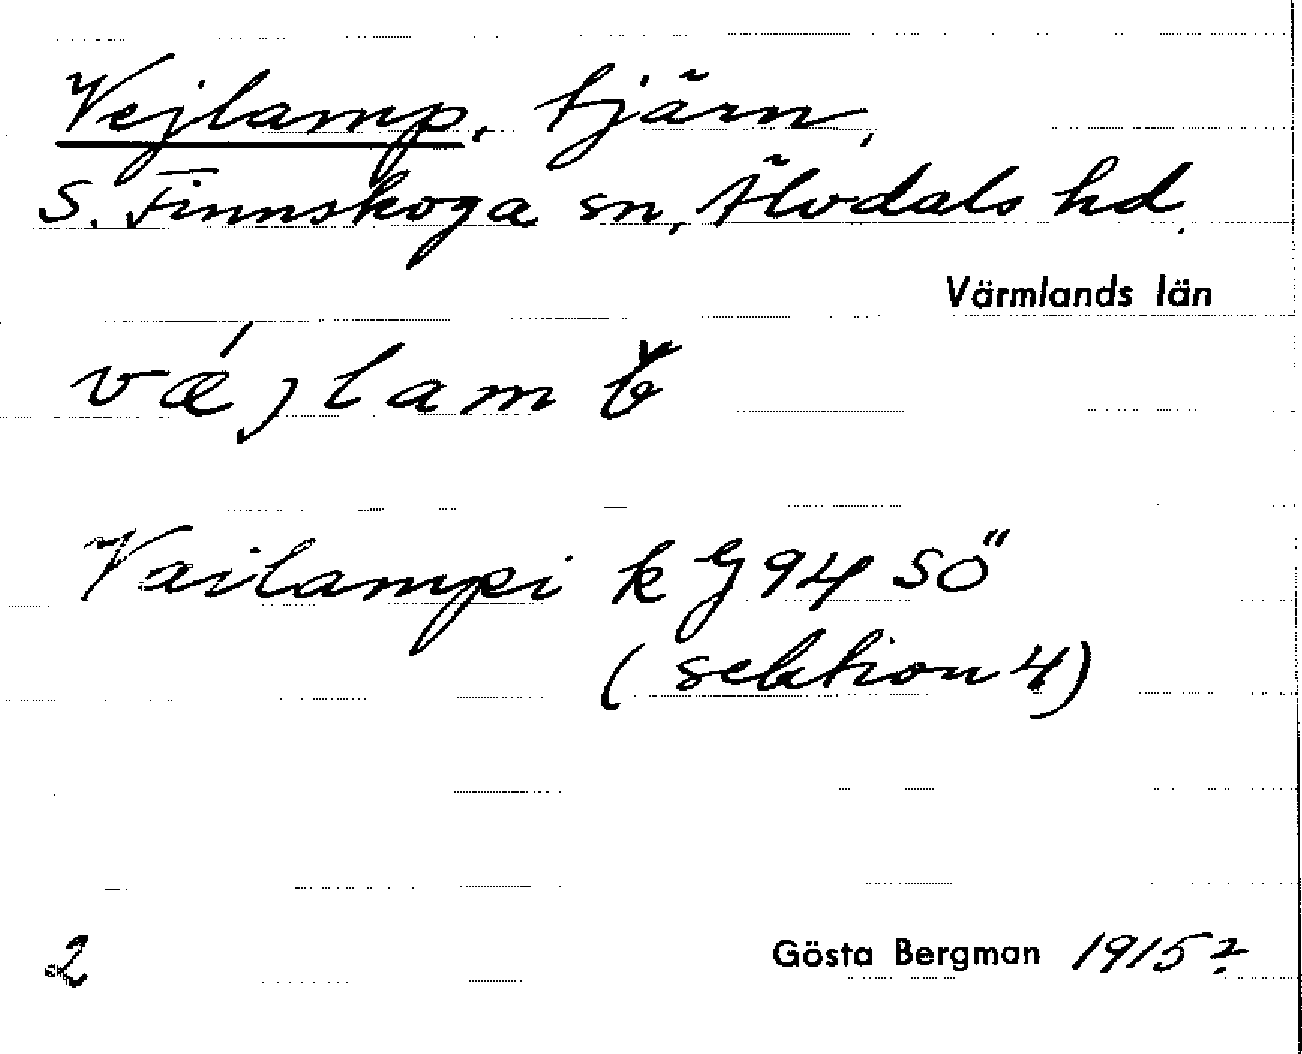 Vejlamp, tjärn,
S. Finnskoga sn, Älvdals hd.
Värmlands län
vǽjlamb̌
Vailampi k G 94 SÖ
(sektion 4)
2
Gösta Bergman 1915?